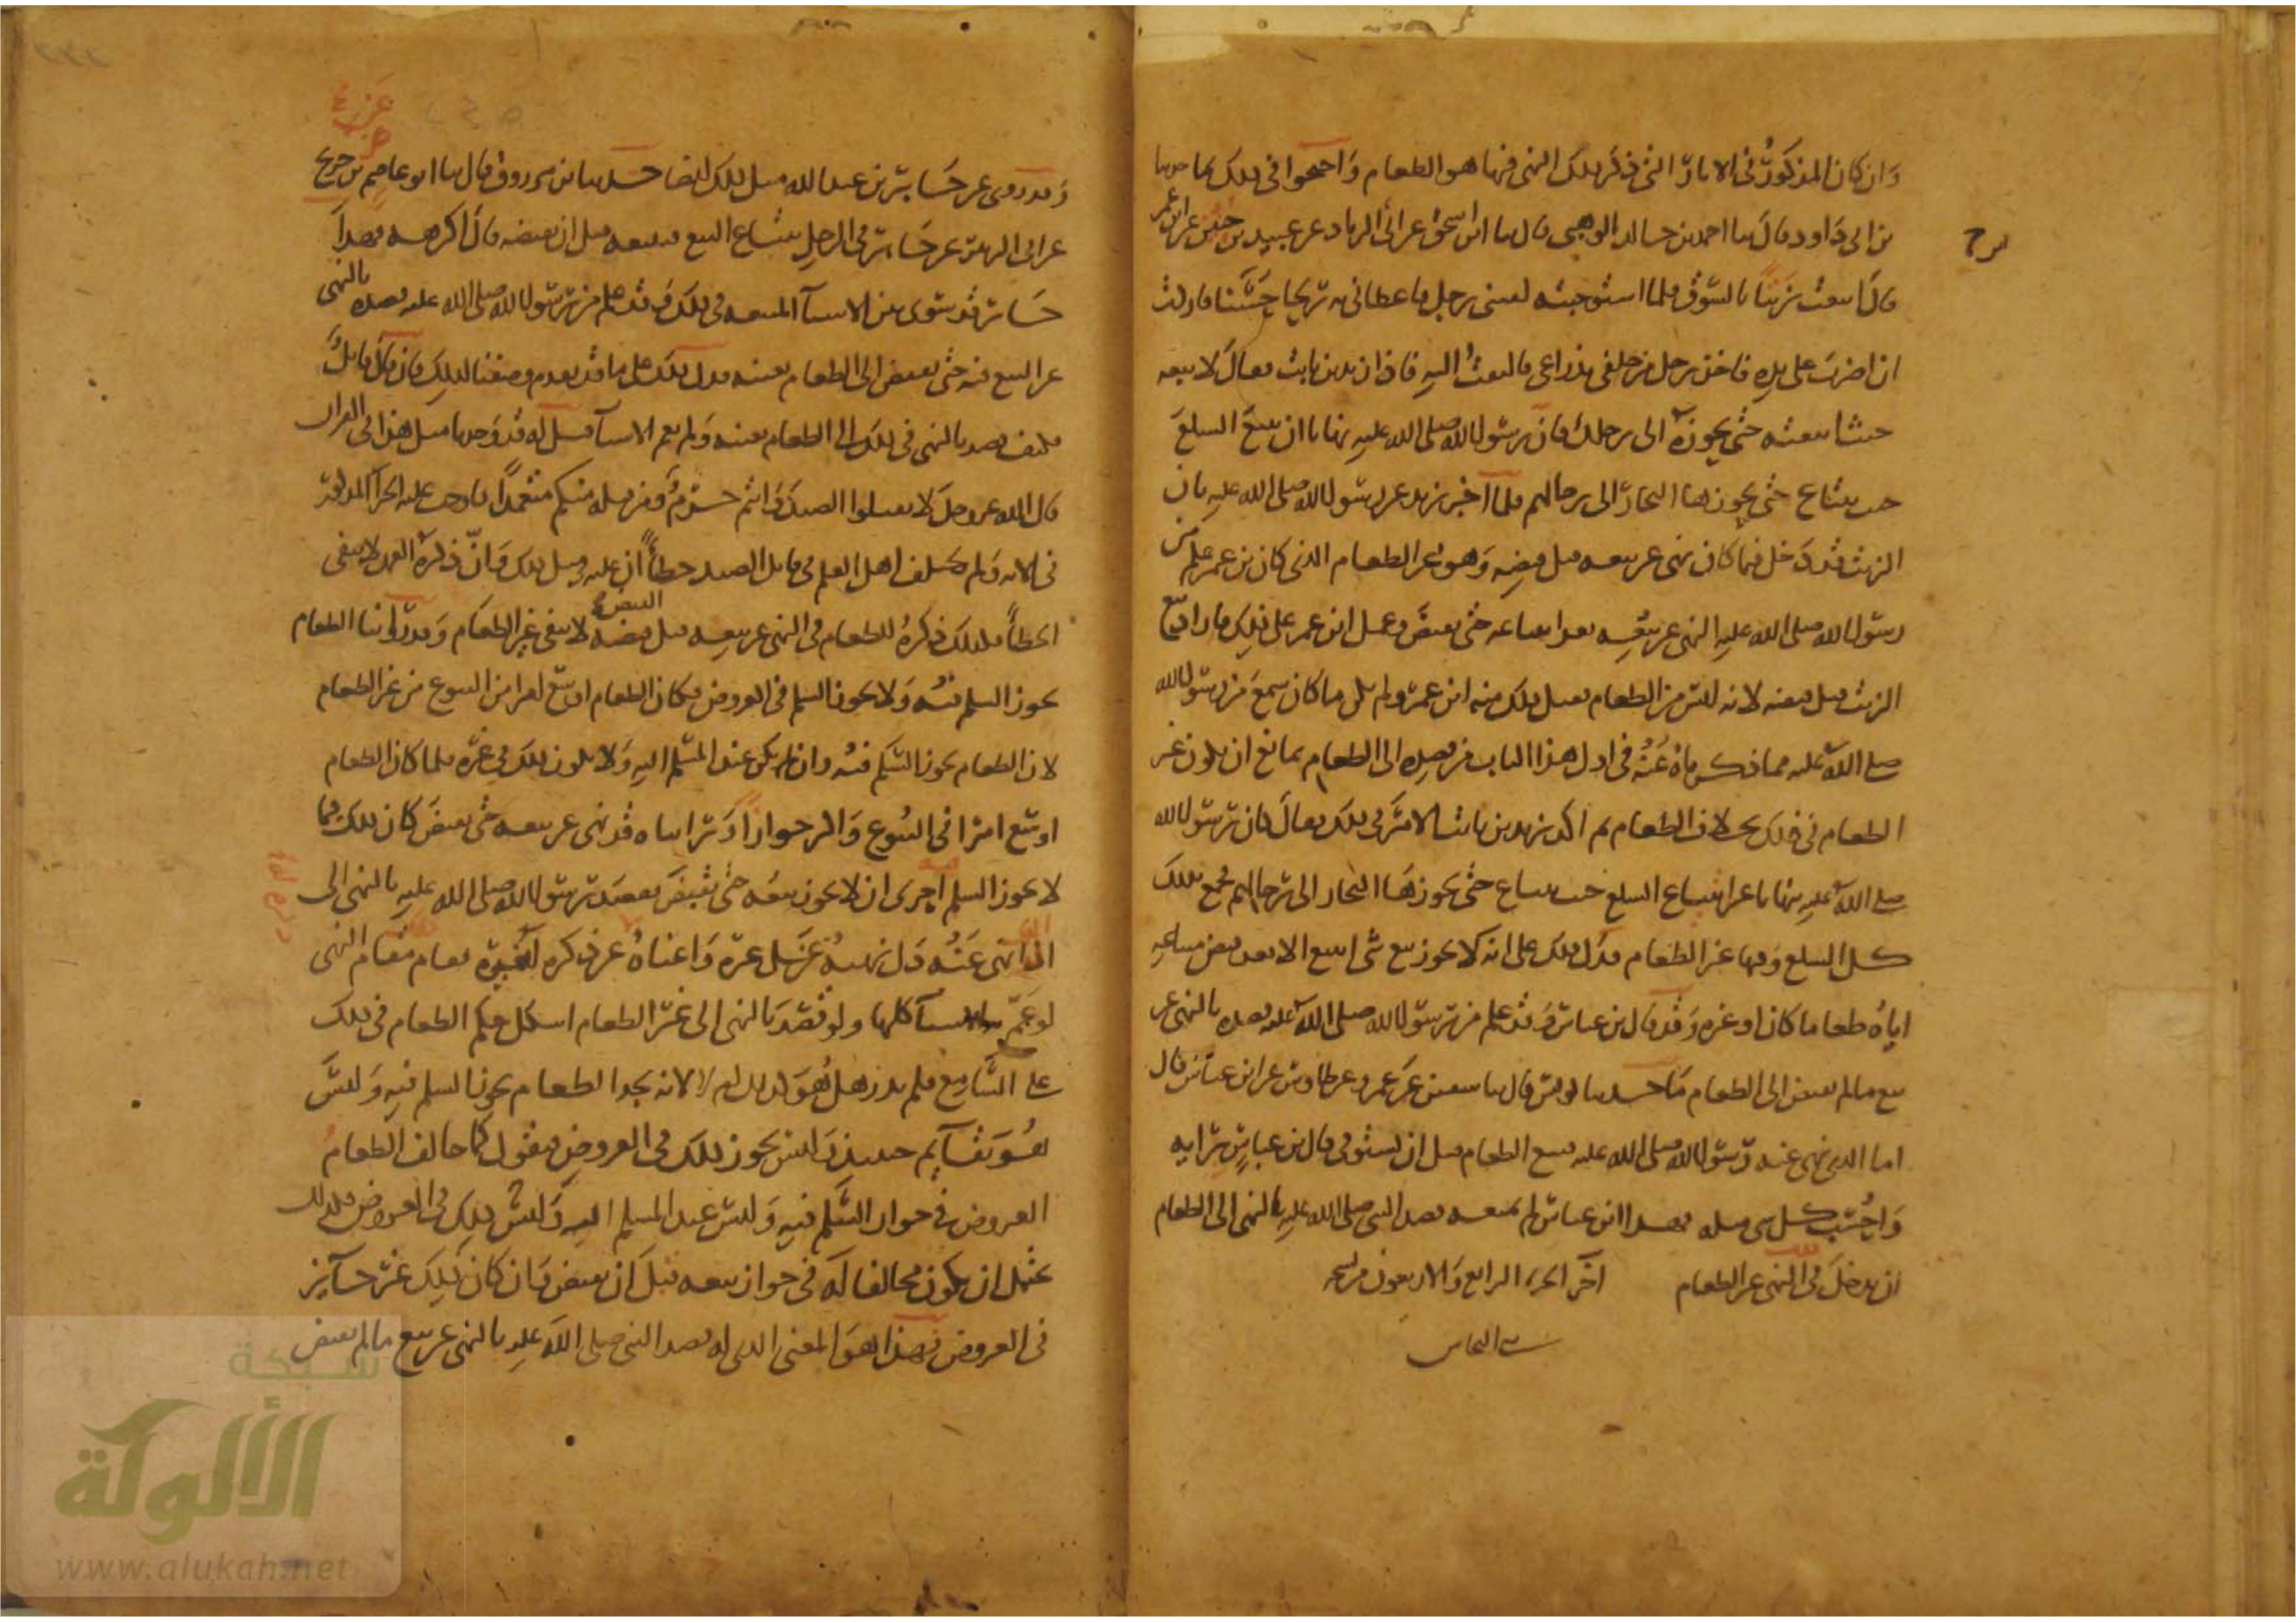 وان كان المذكور في الاثار التي ذكر ذلك النهي فيها هو الطعام واحتجوا في ذلك بما حدثنا
بن ابي داود قال ثنا احمد بن خالد الوهبي قال ثنا ابن اسحق عن ابي الزناد عن عبيد بن حنين عن ابن عمر
قال ابتعت زيتا بالسوق فلما استوجبته لقيني رجل فاعطاني به ربحا حسنا فاردت
ان اضرب على يده فاخذ رجل من خلفي بذراعي فالتفت اليه فاذا زيد بن ثابت فقال لا تبعه
حيث ابتعته حتى تحوزه الى رحلك فان رسول الله صلى الله عليه نهانا ان نبيع السلع
حيث تبتاع حتى يحوزها التجار الى رحالهم فلما اخبر زيد عن رسول الله صلى الله عليه بان
الزيت قد دخل فيما كان نهى عن بيعه قبل قبضه وهو غير الطعام الذي كان بن عمر علم من
رسول الله صلى الله عليه النهي عن بيعه بعد ابتياعه حتى يقبض وعمل ابن عمر على ذلك فاراد بيع
الزيت قبل قبضه لانه ليس من الطعام فقبل ذلك منه ابن عمر ولم يكن ما كان سمع من رسول الله
صلى الله عليه مما ذكرناه عنه في اول هذا الباب من قصده الى الطعام بمانع ان يكون غير
الطعام في ذلك بخلاف الطعام ثم اكد زيد بن ثابت الامر في ذلك فقال كان رسول الله
صلى الله عليه نهانا عن ابتياع السلع حيث تبتاع حتى يحوزها التجار الى رحالهم فجمع بذلك
كل السلع وفيها غير الطعام فدل ذلك على انه لا يجوز بيع شي ابتيع الا بعد قبض مبتاعه
اياه طعاما كان او غيره وقد قال بن عباس وقد علم من رسول الله صلى الله عليه قصده بالنهي عن
بيع ما لم يقبض الى الطعام ما حدثنا يونس قال ثنا سفين عن عمرو عن طاوس عن ابن عباس قال
اما الذي نهى عنه رسول الله صلى الله عليه فبيع الطعام قبل ان يستوفى قال بن عباس برايه
واحسب كل شي مثله فهذا ابن عباس لم يمنعه قصد النبي صلى الله عليه بالنهي الى الطعام
ان يدخل في النهي غير الطعام اخر الجزء الرابع والاربعون من نسخه
النحاس
وقد روي عن جابر بن عبد الله مثل ذلك ايضا حدثنا بن مرزوق قال ثنا ابو عاصم بن جريج
عن ابي الزبير عن جابر في الرجل يبتاع البيع فيبيعه قبل ان يقبضه قال اكرهه فهذا
جابر قد سوى بين الاشيا المبيعه في ذلك وقد علم من رسول الله صلى الله عليه قصده بالنهي
عن البيع فيه حتى يقبض الى الطعام بعينه فدل ذلك على ما قد تقدم وصفنا لذلك فان قال قايل
فكيف قصد بالنهي في ذلك الى الطعام بعينه ولم يعم الاشيا قيل له قد وجدنا مثل هذا في القران
قال الله عز وجل لا تقتلوا الصيد وانتم حرم ومن قتله منكم متعمدا فاوجب عليه الجزا المذكور
في الايه ولم يختلف اهل العلم في قاتل الصيد خطأ ان عليه مثل ذلك وان ذكره العمد لا ينفي
الخطأ فكذلك ذكره الطعام في النهي عن بيعه قبل قبضه لا ينفي غير الطعام وقد راينا الطعام
يجوز السلم فيه ولا يجوز السلم في العروض فكان الطعام اوسع امرا من البيوع من غير الطعام
لان الطعام يجوز السلم فيه وان لم يكن عند المسلم اليه ولا يكون ذلك في غيره فلما كان الطعام
اوسع امرا في البيوع واكثر جوازا ورايناه قد نهى عن بيعه حتى يقبض كان ذلك فيما
لا يجوز السلم فيه احرى ان لا يجوز بيعه حتى يقبض فقصد رسول الله صلى الله عليه بالنهي الى
الذي اذا نهى عنه دل نهيه عنه على غيره واغناه عن ذكره لغيره فقام مقام النهي
لو عم الاشيا كلها ولو قصد بالنهي الى غير الطعام اشكل حكم الطعام في ذلك
على السامع فلم يدر هل هو كذلك ام لا لانه يجد الطعام يجوز السلم فيه وليس
هو بقايم حينئذ وليس يجوز ذلك في العروض فيقول كما خالف الطعام
العروض في جواز السلم فيه وليس عند المسلم اليه وليس ذلك في العروض فكذلك
يحتمل ان يكون مخالفا له في جواز بيعه قبل ان يقبض وان كان ذلك غير جايز
في العروض فهذا هو المعنى الذي له قصد النبي صلى الله عليه بالنهي عن بيع ما لم يقبض
شبكة
الألوكة
www.alukah.net